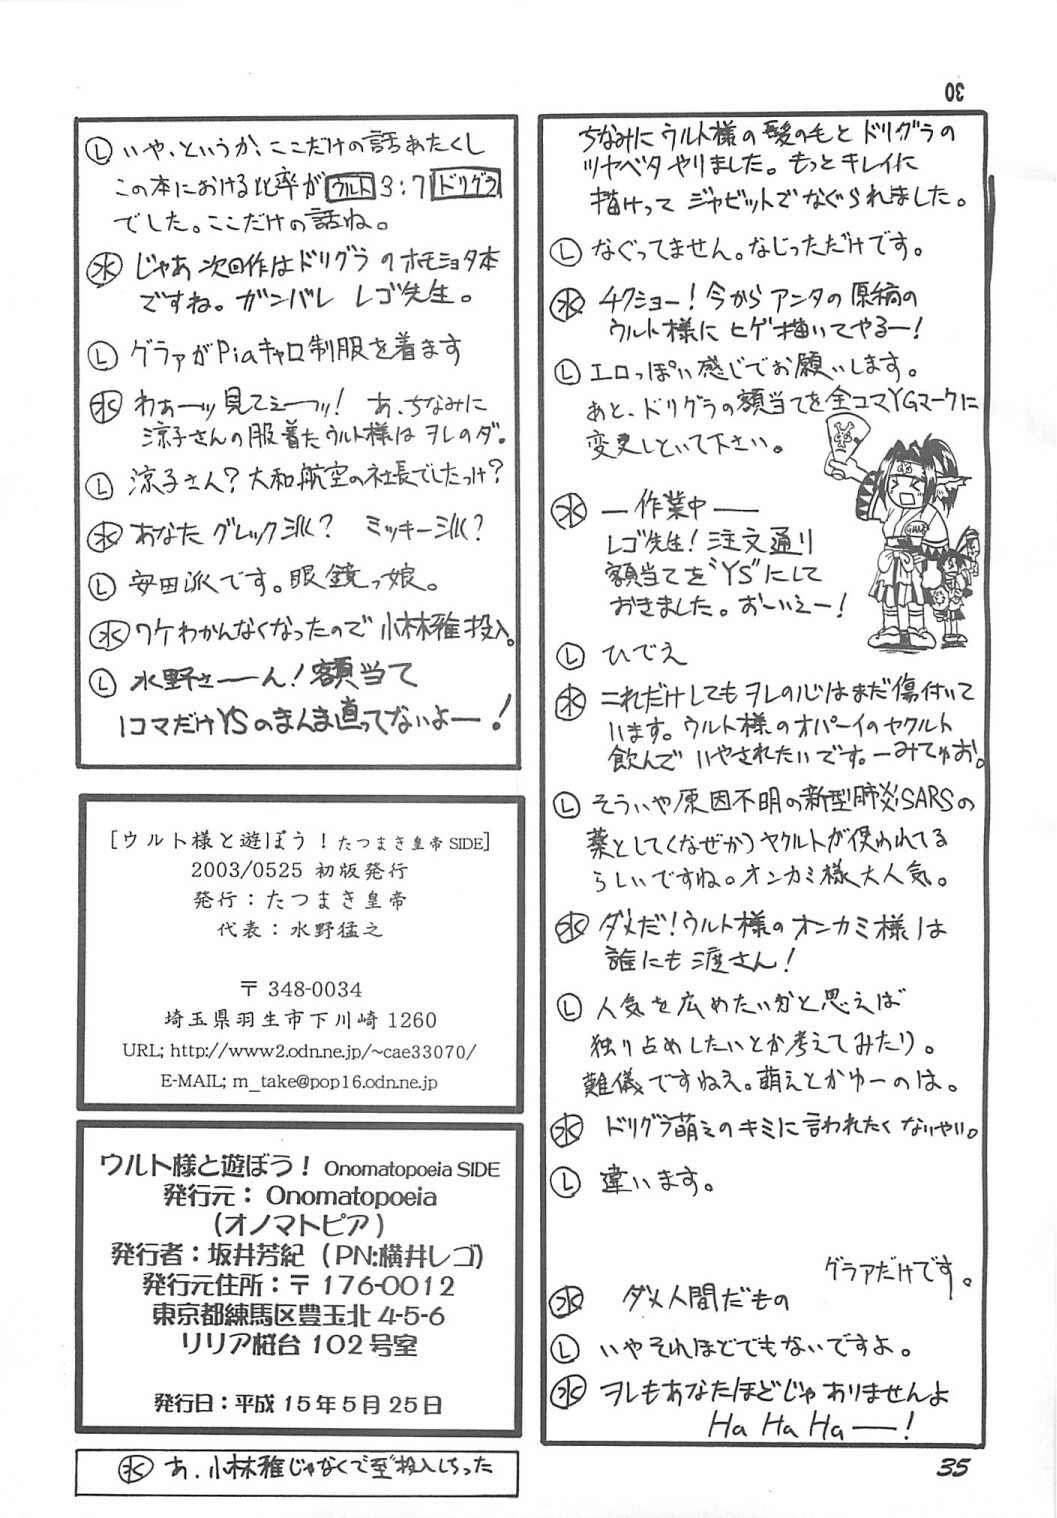 30
ちなみにウルト様の髪の毛とドリグラの
ツヤベタやりました。もっとキレイに
描けってジャビットでなぐられました。
Ⓛ なぐってません。なじっただけです。
㊌ チクショー！今からアンタの原稿の
ウルト様にヒゲ描いてやるー！
Ⓛ エロっぽい感じでお願いします。
あと、ドリグラの額当てを全コマYGマークに
変更しといて下さい。
㊌ ―作業中―
レゴ先生！注文通り
額当てを“YS”にして
おきました。おーいえー！
Ⓛ ひでえ
㊌ これだけしてもヲレの心はまだ傷付いて
います。ウルト様のオパーイのヤクルト
飲んでいやされたいです。―みてゅお。
Ⓛ そういや原因不明の新型肺炎SARSの
薬として（なぜか）ヤクルトが使われてる
らしいですね。オンカミ様大人気。
㊌ ダメだ！ウルト様のオンカミ様は
誰にも渡さん！
Ⓛ 人気を広めたいかと思えば
独り占めしたいとか考えてみたり。
難儀ですねえ。萌えとかゆーのは。
㊌ ドリグラ萌えのキミに言われたくないやい。
Ⓛ 違います。
グラァだけです。
㊌ ダメ人間だもの
Ⓛ いやそれほどでもないですよ。
㊌ ヲレもあなたほどじゃありませんよ
Ha Ha Ha―！
35
Ⓛ いや、というか、ここだけの話あたくし
この本における比率がウルト3:7ドリグラ
でした。ここだけの話ね。
㊌ じゃあ次回作はドリグラのホモショタ本
ですね。ガンバレ レゴ先生。
Ⓛ グラァがPiaキャロ制服を着ます
㊌ わぁーッ見てぇーッ！ あ、ちなみに
涼子さんの服着たウルト様はヲレのダ。
Ⓛ 涼子さん？大和航空の社長でしたっけ？
㊌ あなたグレック派？ ミッキー派？
Ⓛ 安田派です。眼鏡っ娘。
㊌ ワケわかんなくなったので小林雅投入。
Ⓛ 水野さーん！額当て
1コマだけYSのまんま直ってないよー！
[ウルト様と遊ぼう！たつまき皇帝SIDE]
2003/0525 初版発行
発行：たつまき皇帝
代表：水野猛之
〒348-0034
埼玉県羽生市下川崎1260
URL; http://www2.odn.ne.jp/~cae33070/
E-MAIL; m_take@pop16.odn.ne.jp
ウルト様と遊ぼう！ Onomatopoeia SIDE
発行元：Onomatopoeia
(オノマトピア)
発行者：坂井芳紀（PN:横井レゴ）
発行元住所：〒176-0012
東京都練馬区豊玉北4-5-6
リリア桜台102号室
発行日：平成15年5月25日
㊌ あ、小林雅じゃなくて至“投入しちった